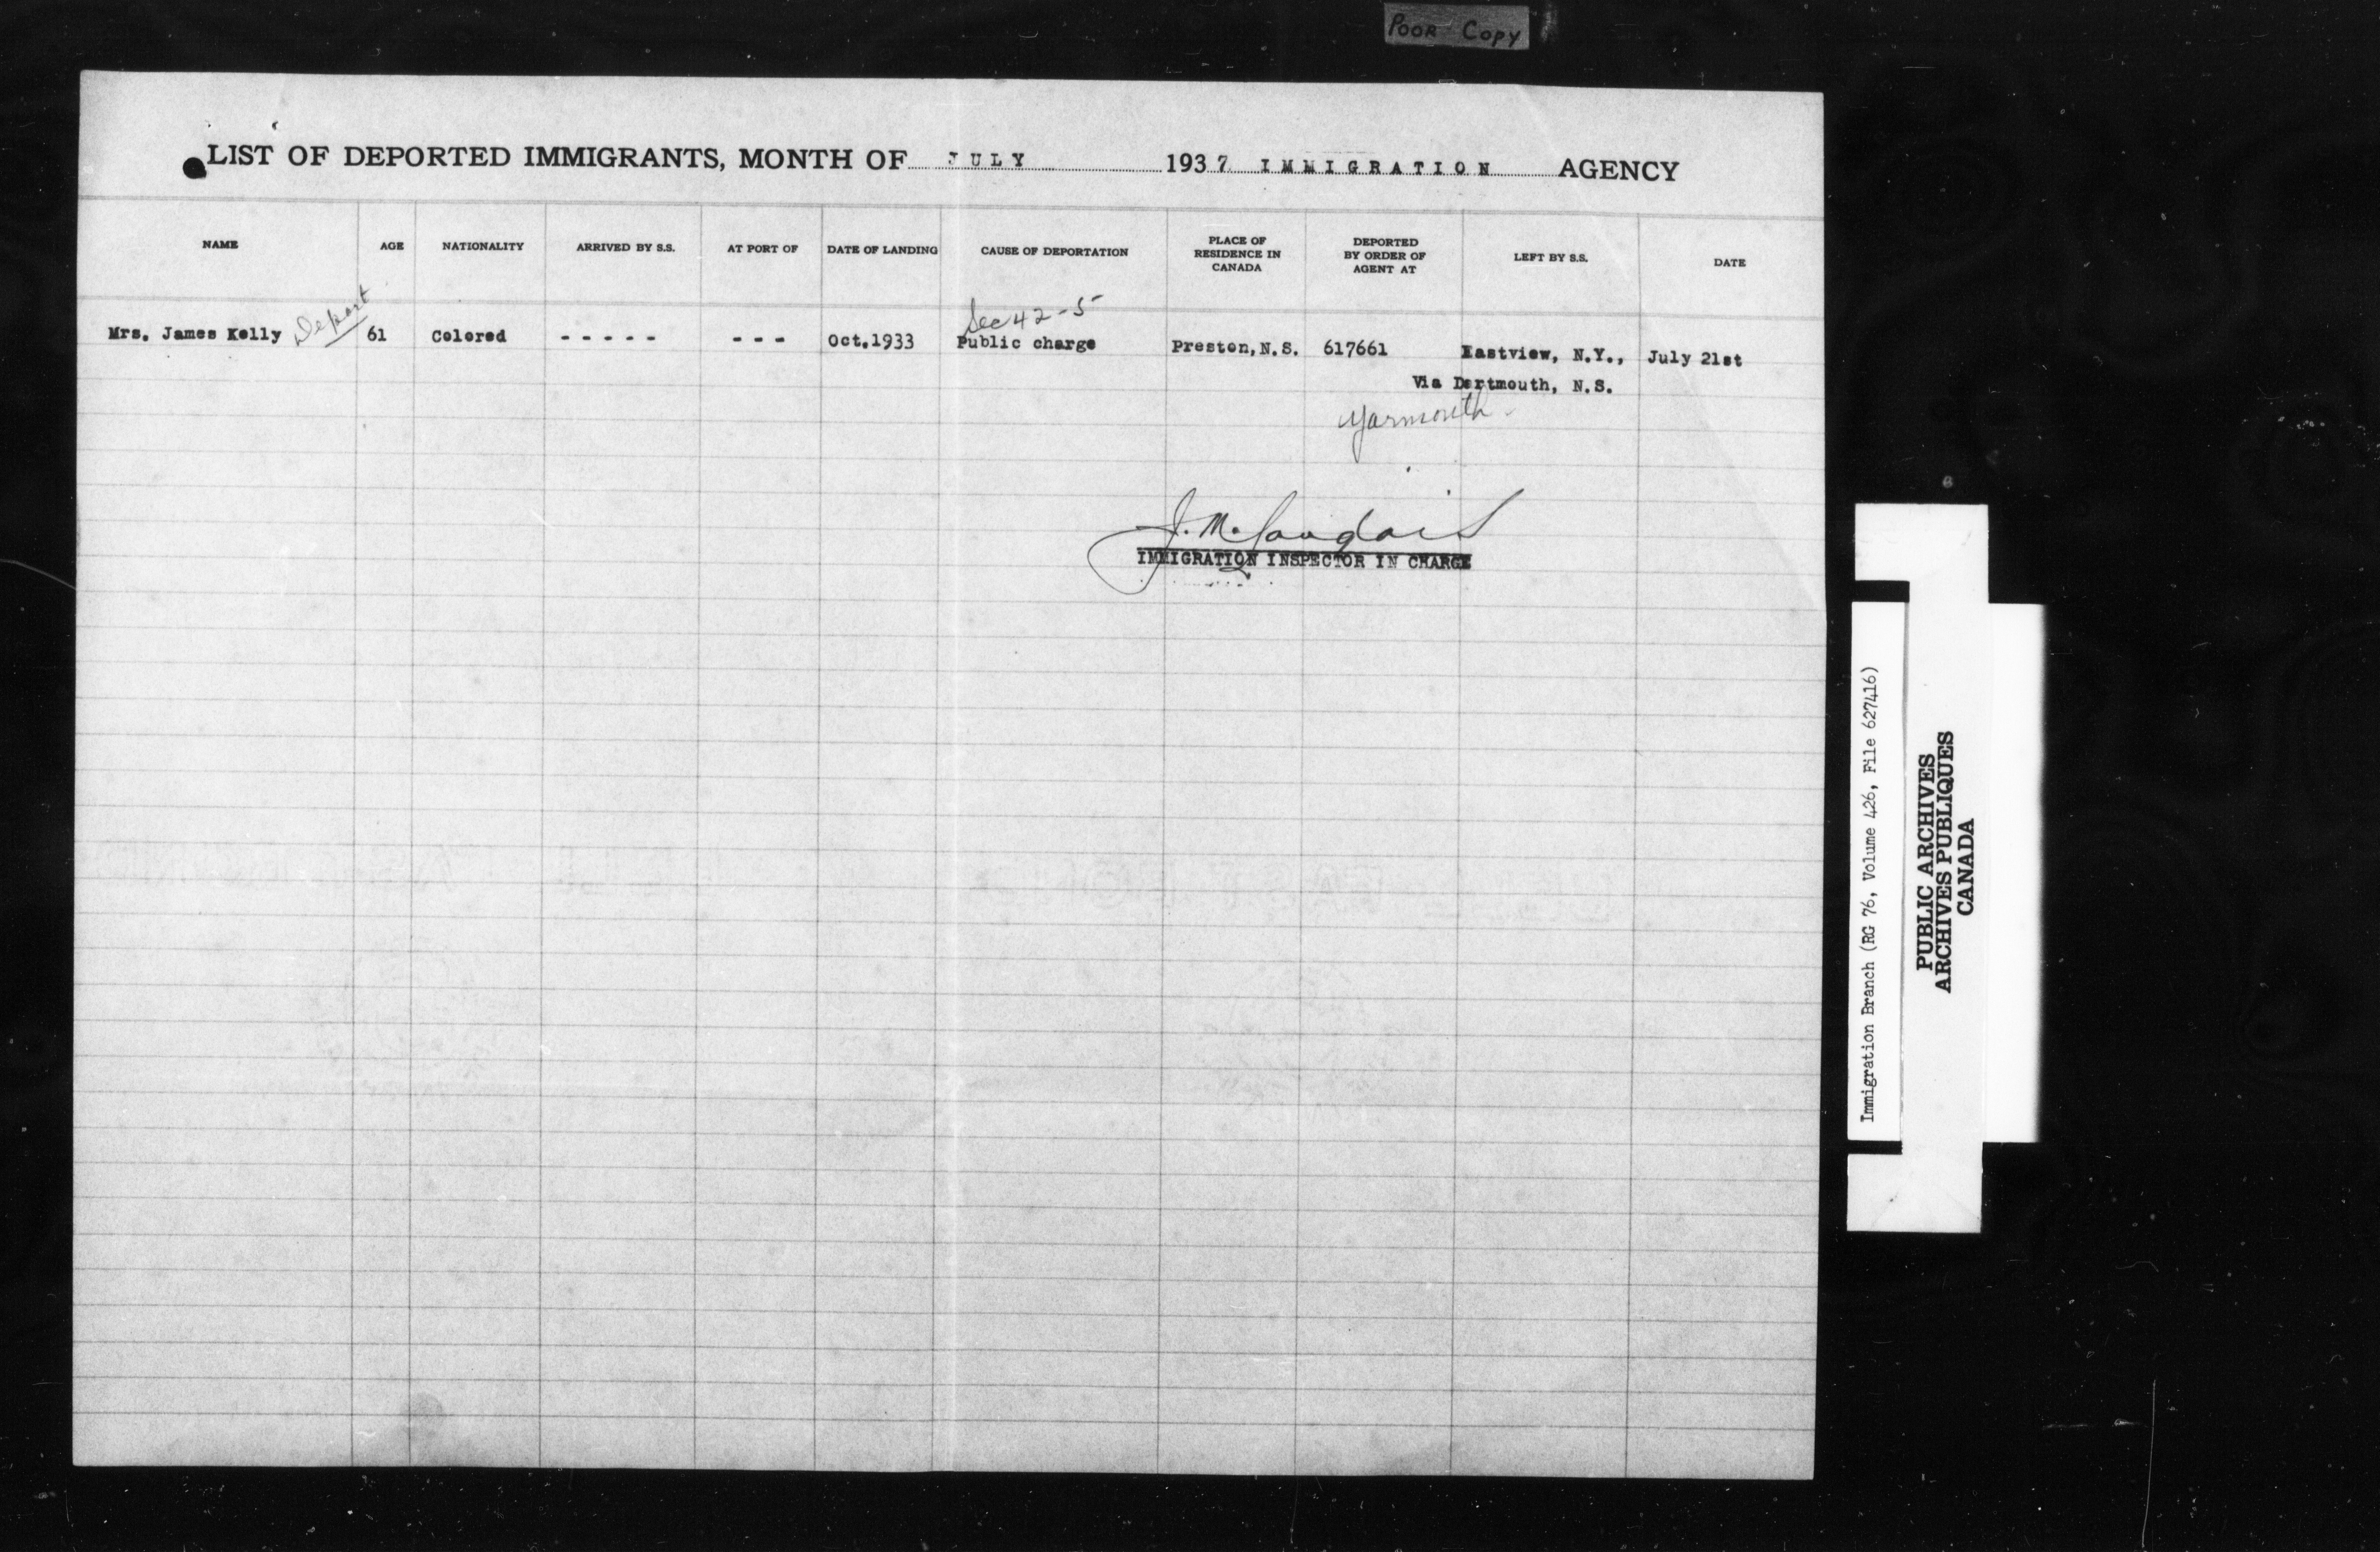 POOR COPY
LIST OF DEPORTED IMMIGRANTS, MONTH OF JULY 1937 IMMIGRATION AGENCY
NAME AGE NATIONALITY ARRIVED BY S.S. AT PORT OF DATE OF LANDING CAUSE OF DEPORTATION PLACE OF RESIDENCE IN CANADA DEPORTED BY ORDER OF AGENT AT LEFT BY S.S. DATE
Depart Sec 42-5
Mrs. James Kelly 61 Colored - - - - - - - - Oct.1933 Public charge Preston, N.S. 617661 Eastview, N.Y., July 21st
Via Dartmouth, N.S.
Yarmouth
J. M.
IMMIGRATION INSPECTOR IN CHARGE
Immigration Branch (RG 76, Volume 426, File 627416)
PUBLIC ARCHIVES
ARCHIVES PUBLIQUES
CANADA